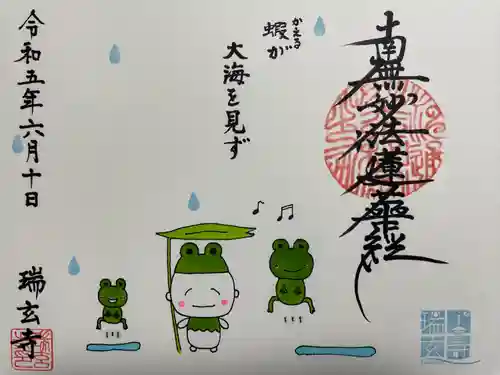 南無妙法蓮華経
蝦が
かえる
大海を見ず
令和五年六月十日
瑞玄寺